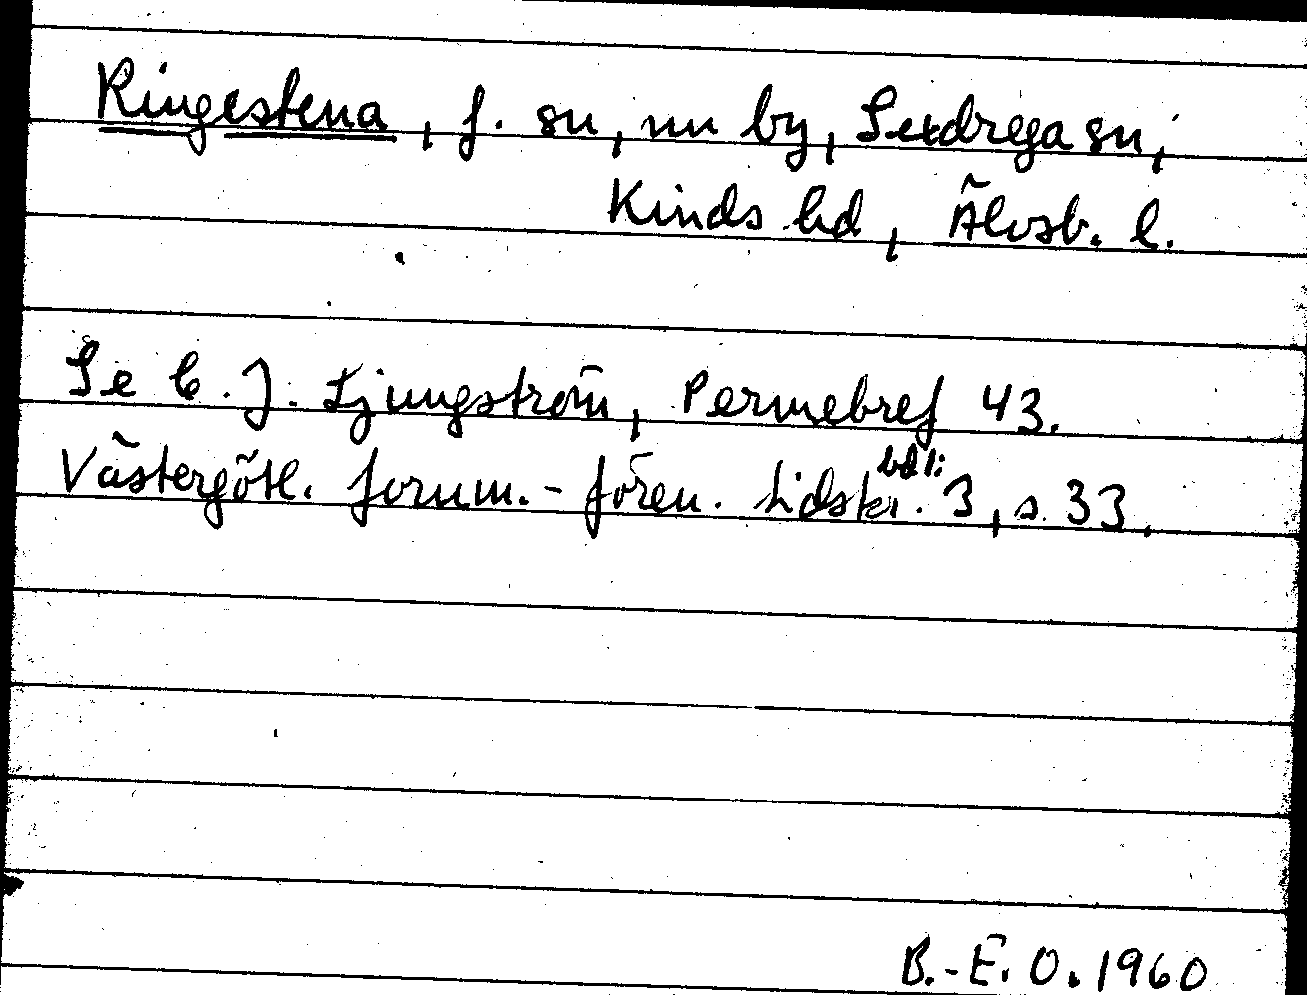 Ringestena, f. sn, nu by, Sexdrega sn,
Kinds hd, Älvsb. l.
Se C. J. Ljungström, Permebref 43.
Västergötl. fornm.-fören. tidskr. bd 1: 3, s. 33.
B.-E. O. 1960